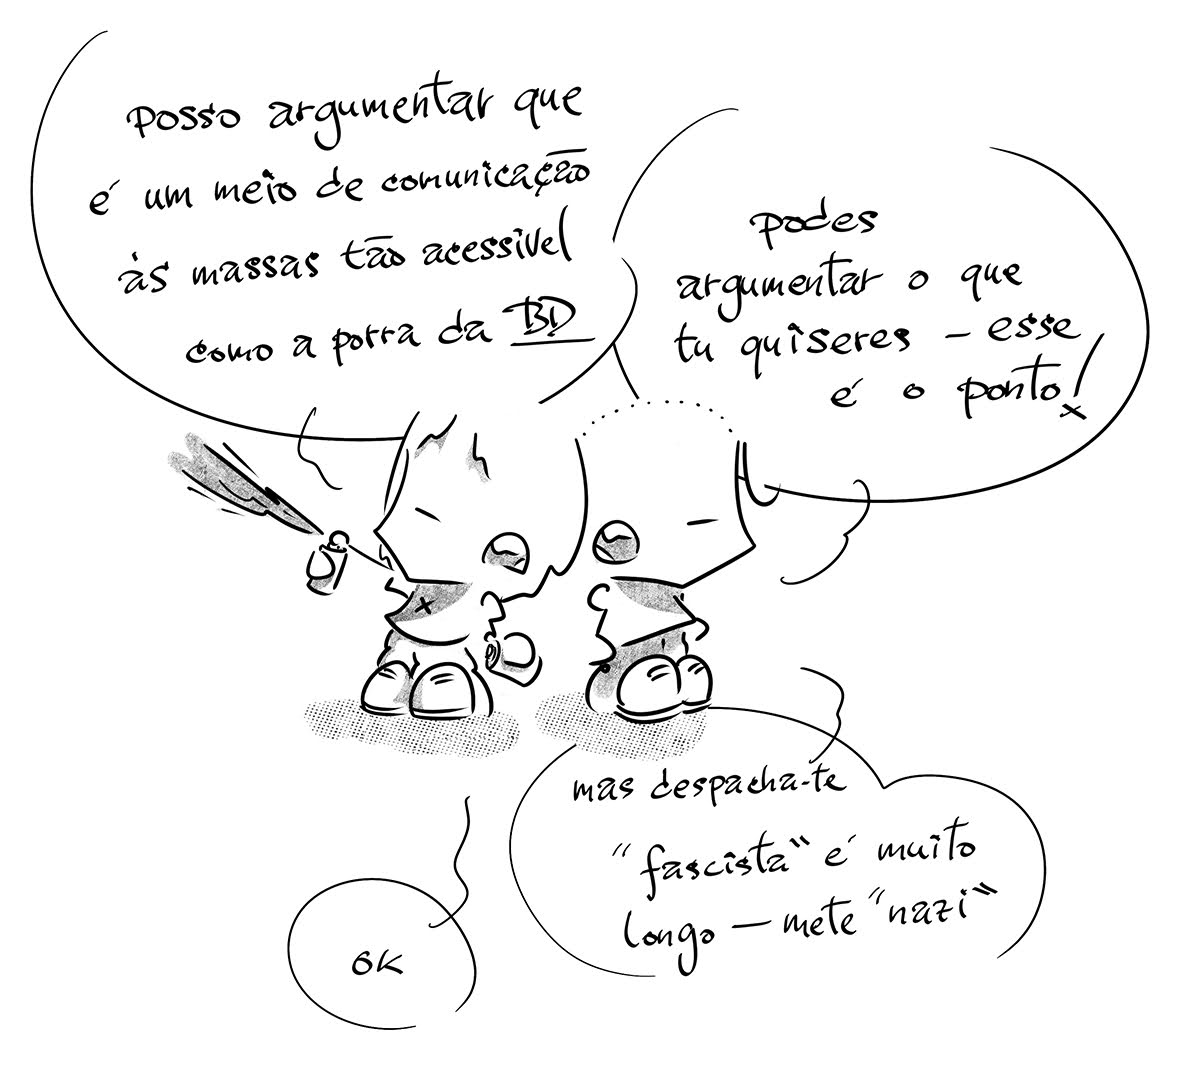 posso argumentar que
é um meio de comunicação
às massas tão acessível
como a porra da BD
podes
argumentar o que
tu quiseres – esse
é o ponto!
mas despacha-te
"fascista" é muito
longo – mete "nazi"
OK